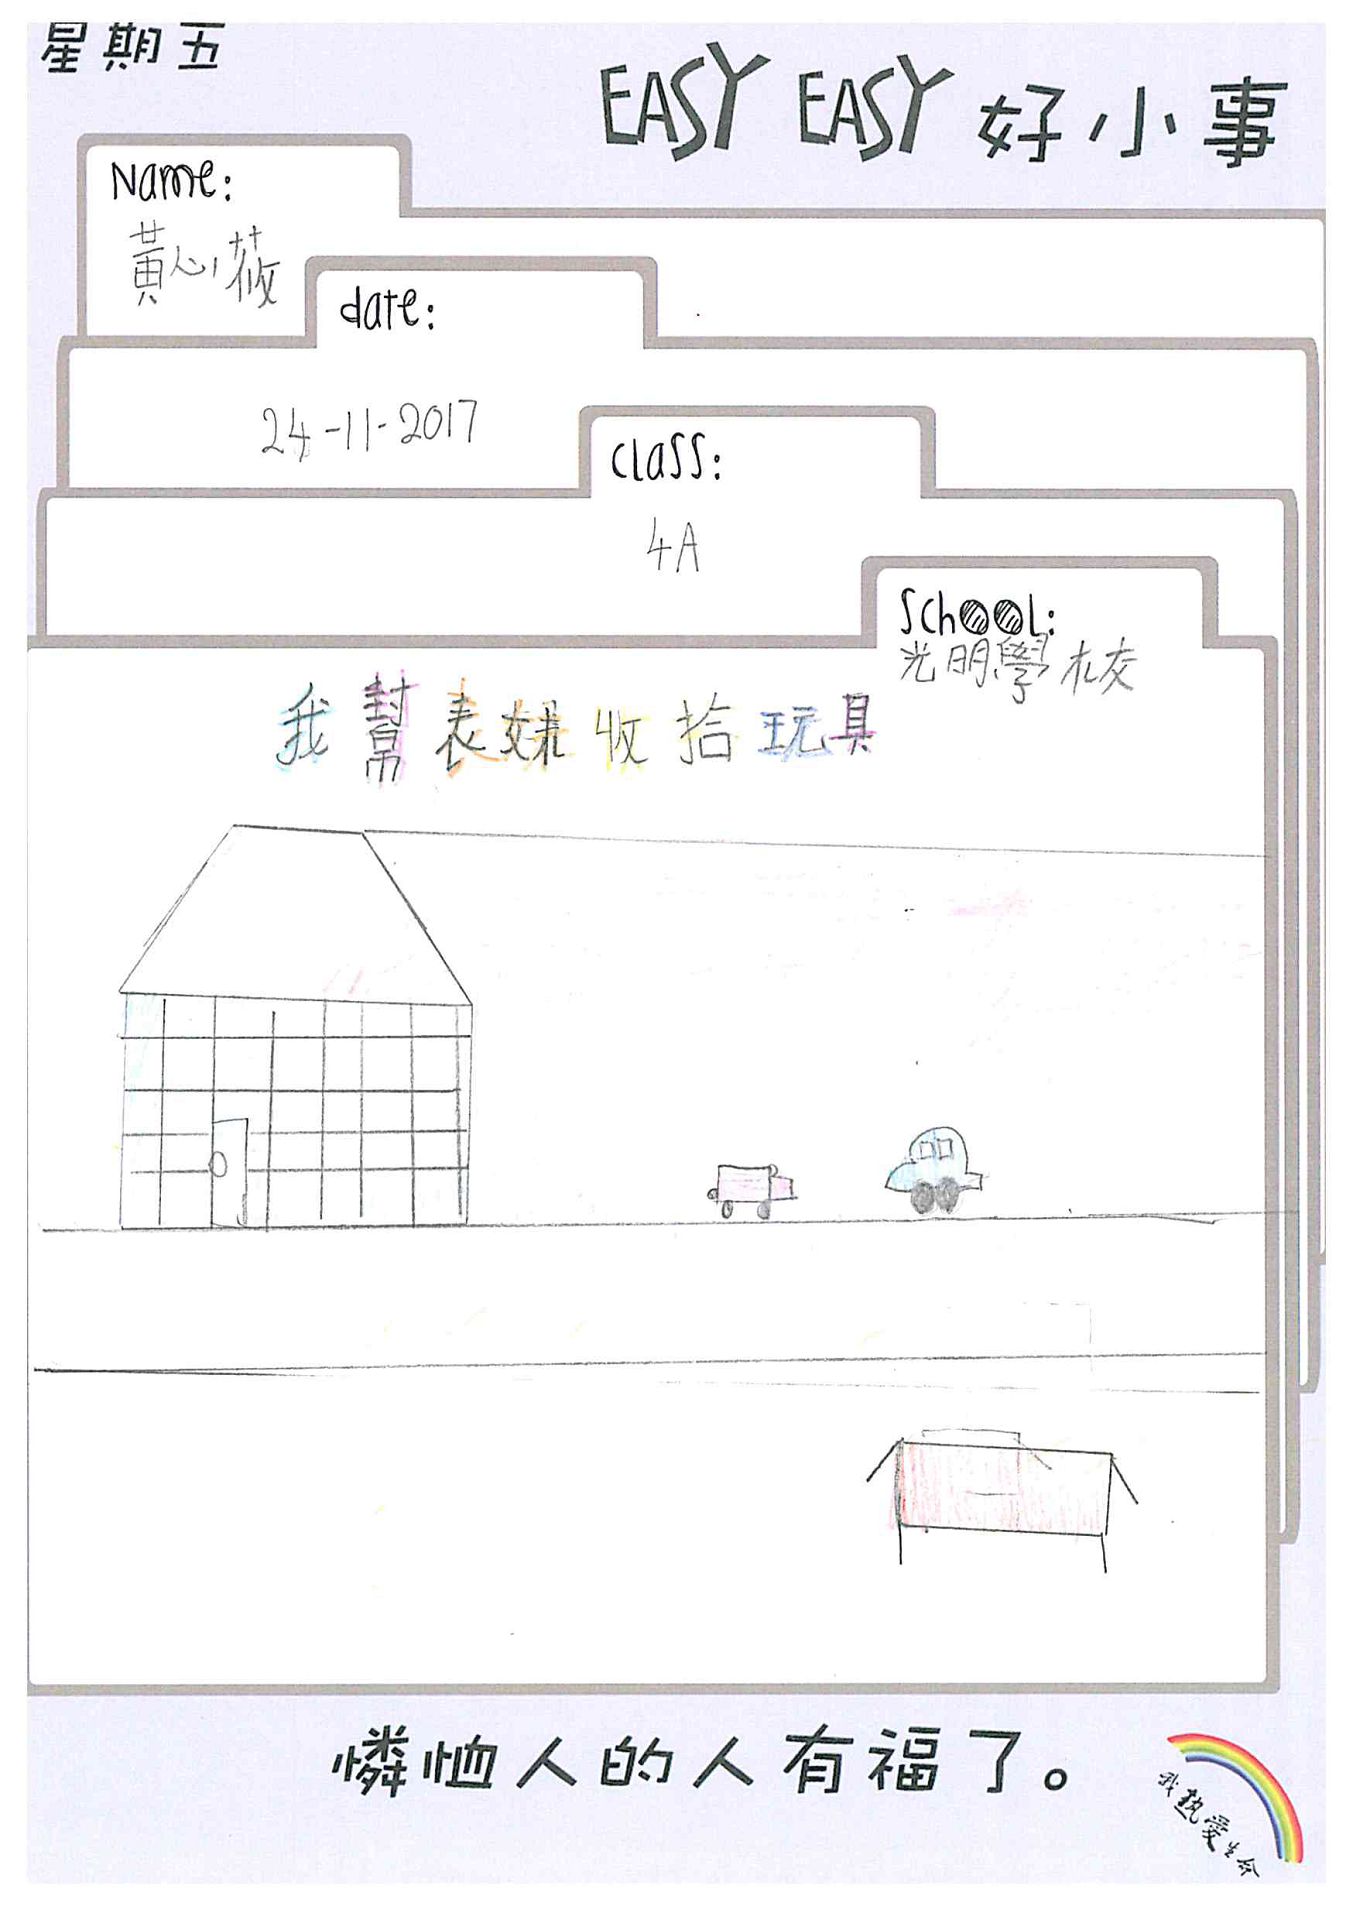 星期五
EASY EASY 好小事
Name:
黃心莜
date:
24-11-2017
class:
4A
School:
光明學校
我幫表妹收拾玩具
憐恤人的人有福了。
我熱愛生命